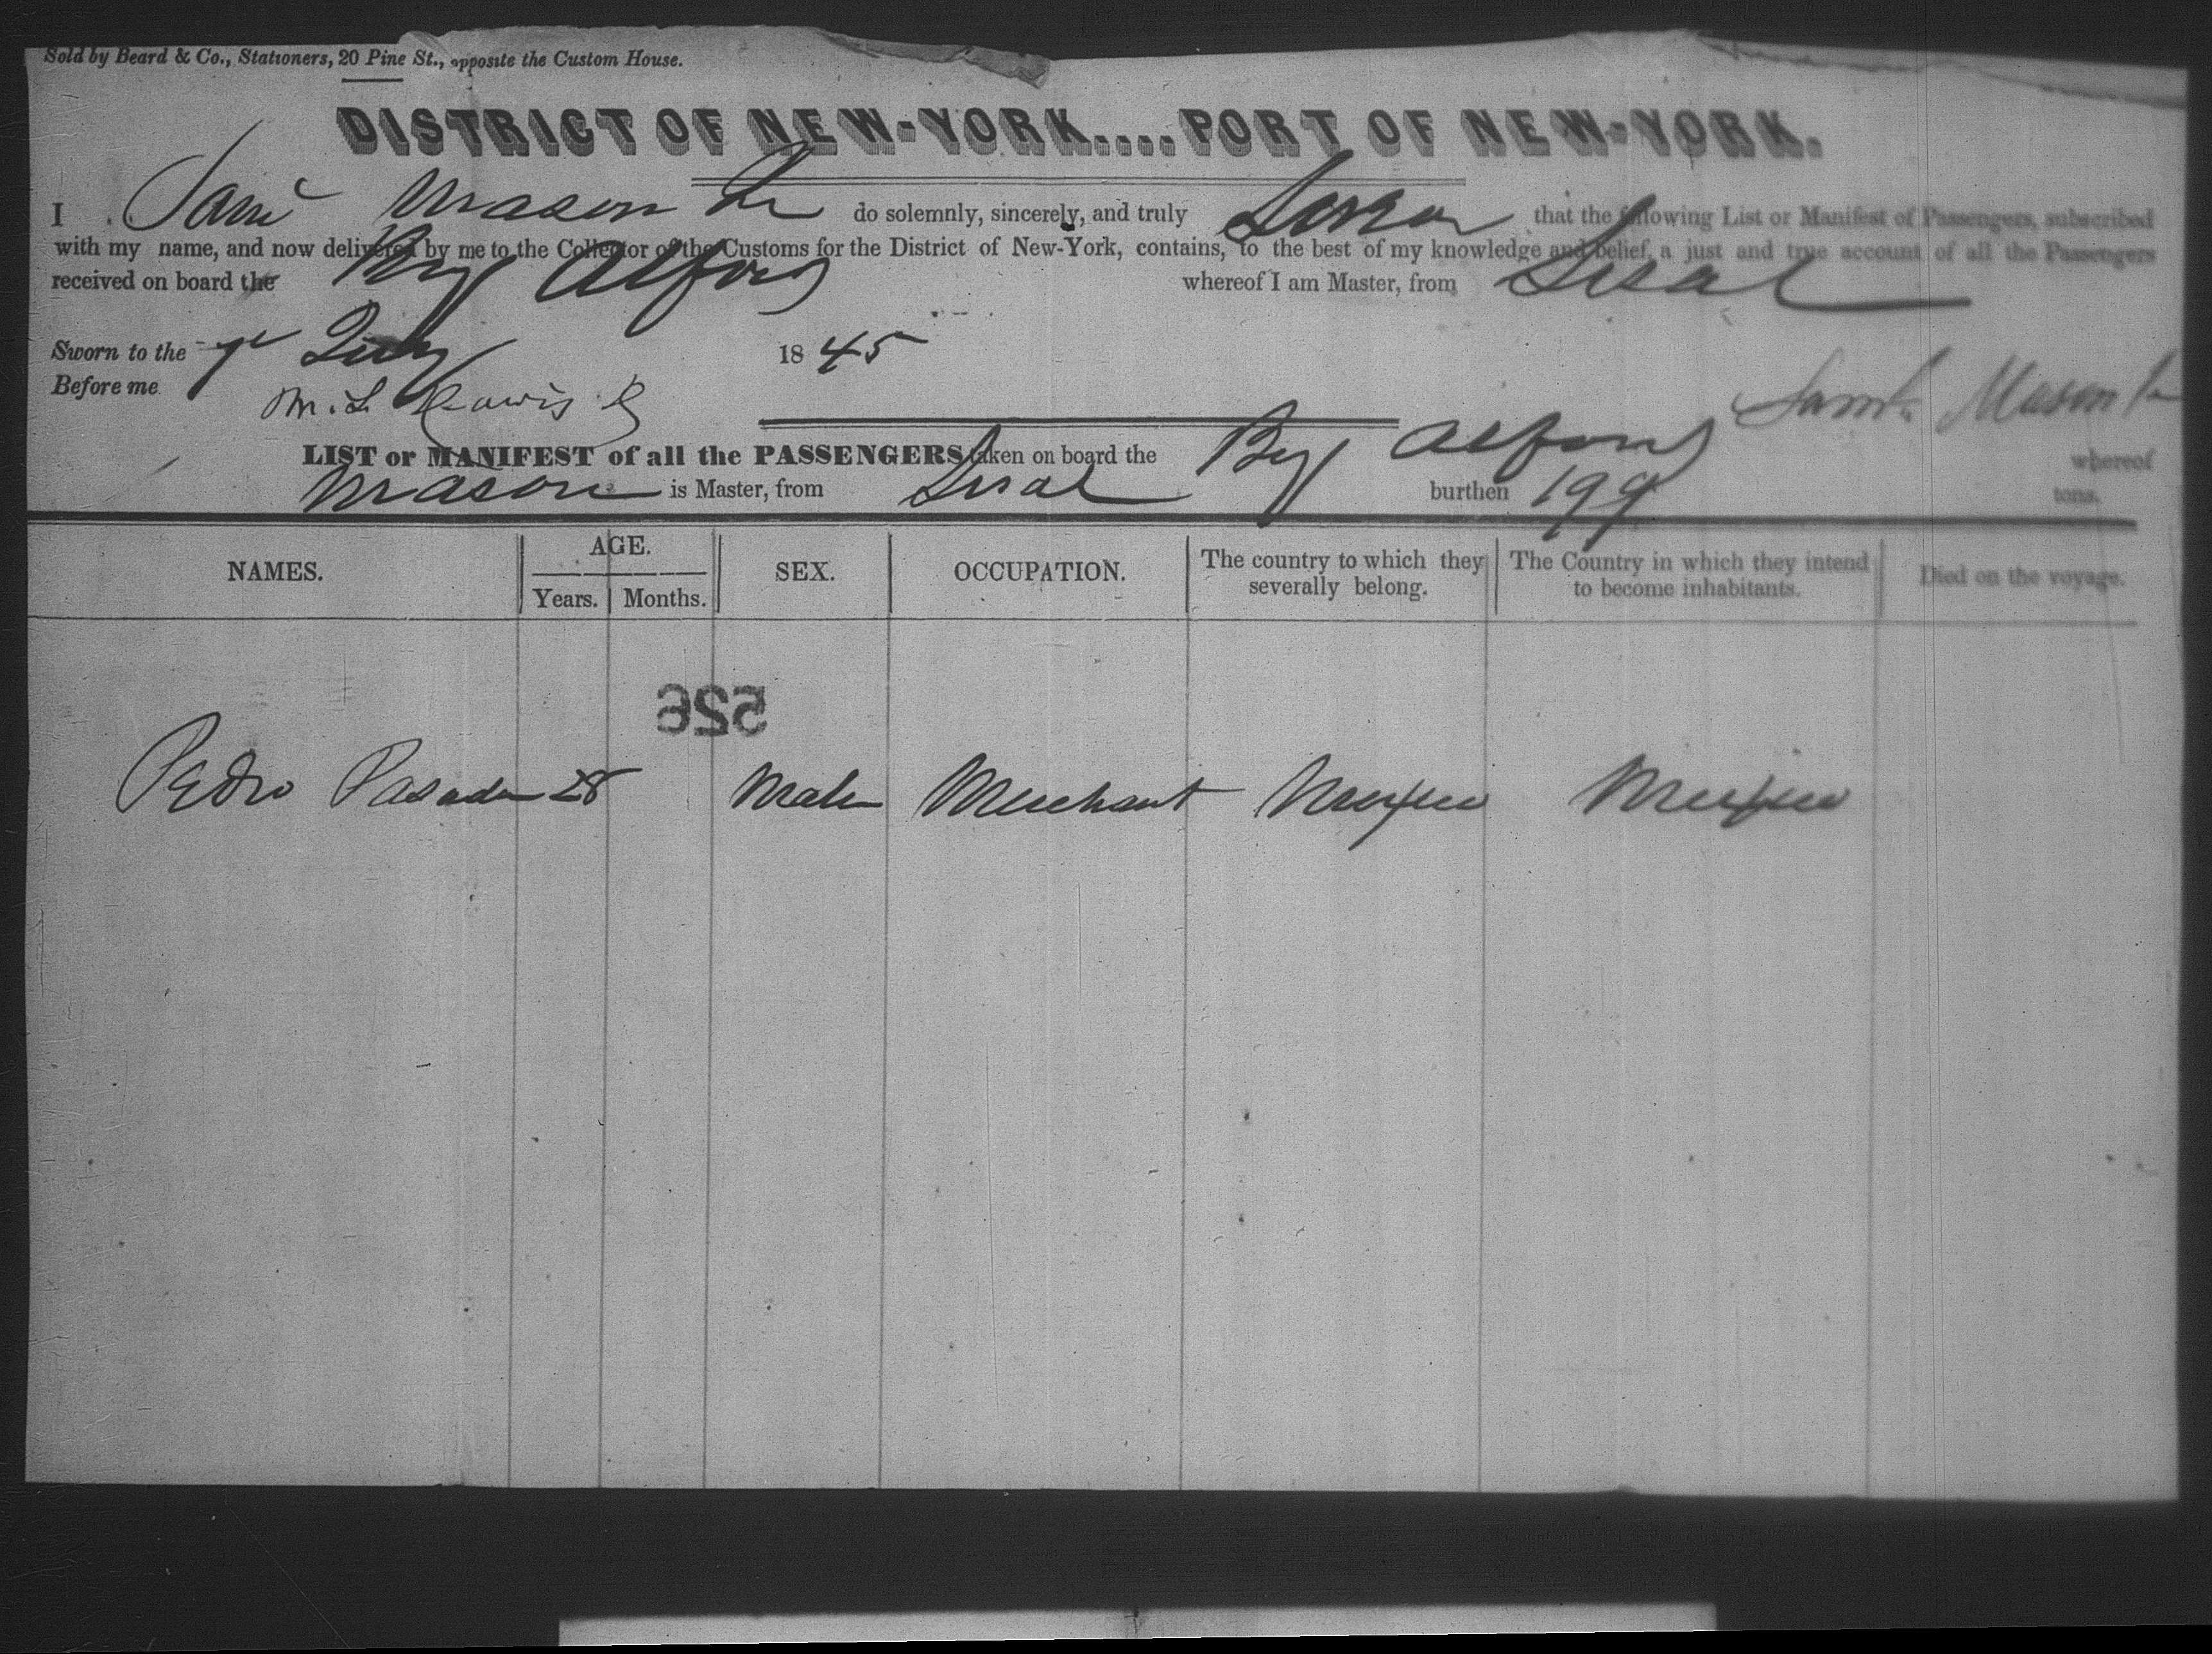 Sold by Beard & Co., Stationers, 20 Pine St., opposite the Custom House.
DISTRICT OF NEW-YORK....PORT OF NEW-YORK.
I Saml Mason Jr do solemnly, sincerely, and truly Swear that the following List or Manifest of Passengers, subscribed
with my name, and now delivered by me to the Collector of the Customs for the District of New-York, contains, to the best of my knowledge and belief, a just and true account of all the Passengers
received on board the Brig whereof I am Master, from Sisal
Sworn to the July 1845
Before me
Saml. Mason Jr
LIST or MANIFEST of all the PASSENGERS taken on board the Brig whereof
Mason is Master, from Sisal burthen 199 tons.
NAMES. AGE. Years. Months. SEX. OCCUPATION. The country to which they severally belong. The Country in which they intend to become inhabitants. Died on the voyage.
526
Pedro 28 Male Merchant Mexico Mexico